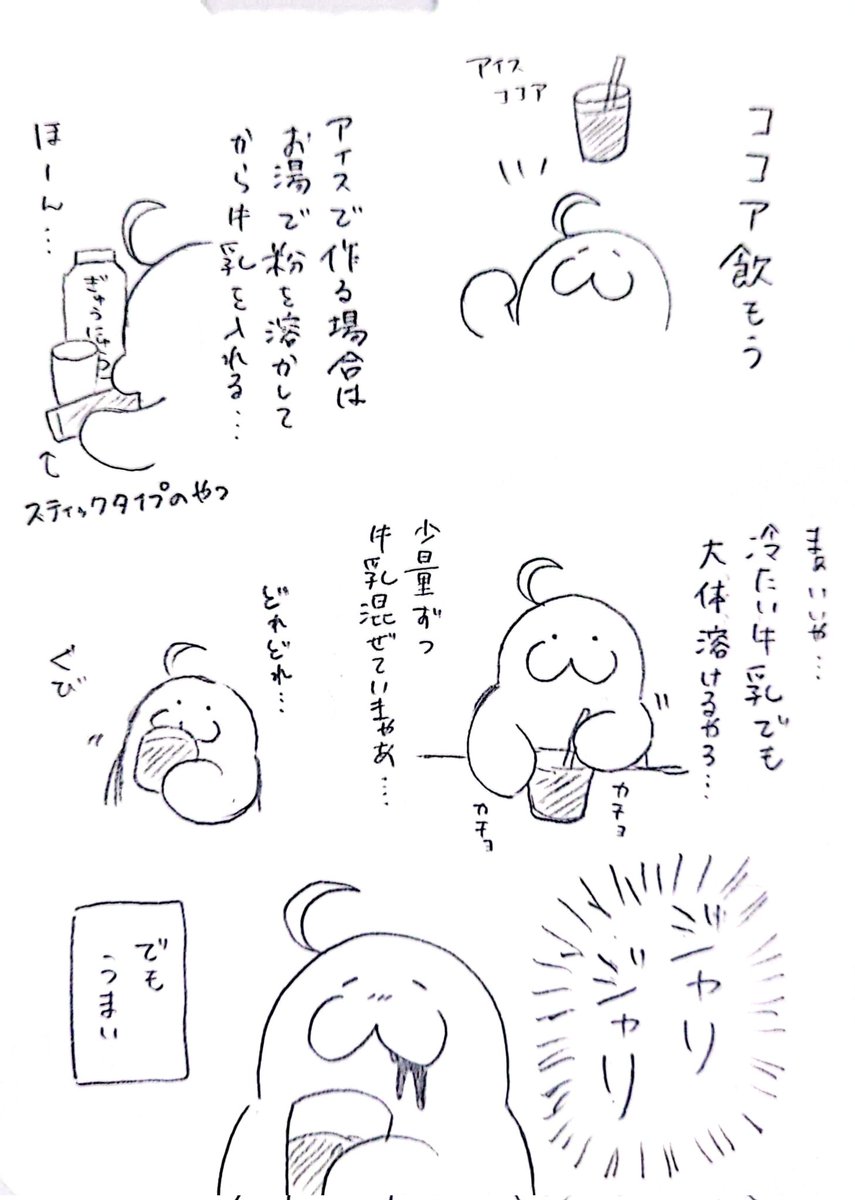 ココア飲もう
アイス
ココア
アイスで作る場合は
お湯で粉を溶かして
から牛乳を入れる…
ほーん…
ぎゅうにゅう
スティックタイプのやつ
まぁいいや…
冷たい牛乳でも
大体溶けるやろ…
カチョ
カチョ
少量ずつ
牛乳混ぜていまやあ…
どれどれ…
ぐび
ジャリ
ジャリ
でも
うまい